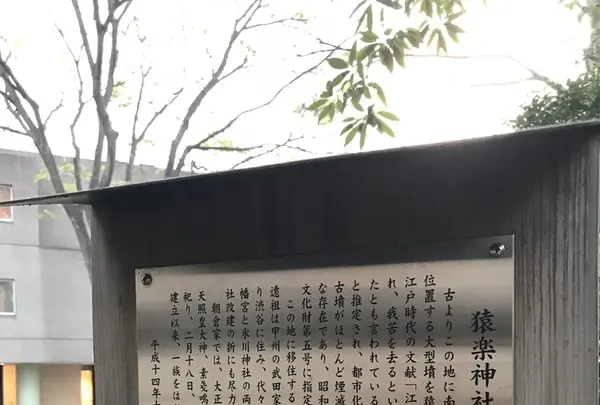 猿楽神社
古よりこの地に南
位置する大型墳を猿
江戸時代の文献「江
れ、我苦を去るとい
たとも言われている
と推定され、都市化
古墳がほとんど煙滅
な存在であり、昭和
文化財第五号に指定
この地に移住する
遠祖は甲州の武田家
り渋谷に住み、代々
幡宮と氷川神社の両
社改建の折にも尽力
朝倉家では、大正
天照皇大神、素戔嗚
祀り、二月十八日、
建立以来、一族をは
平成十四年十